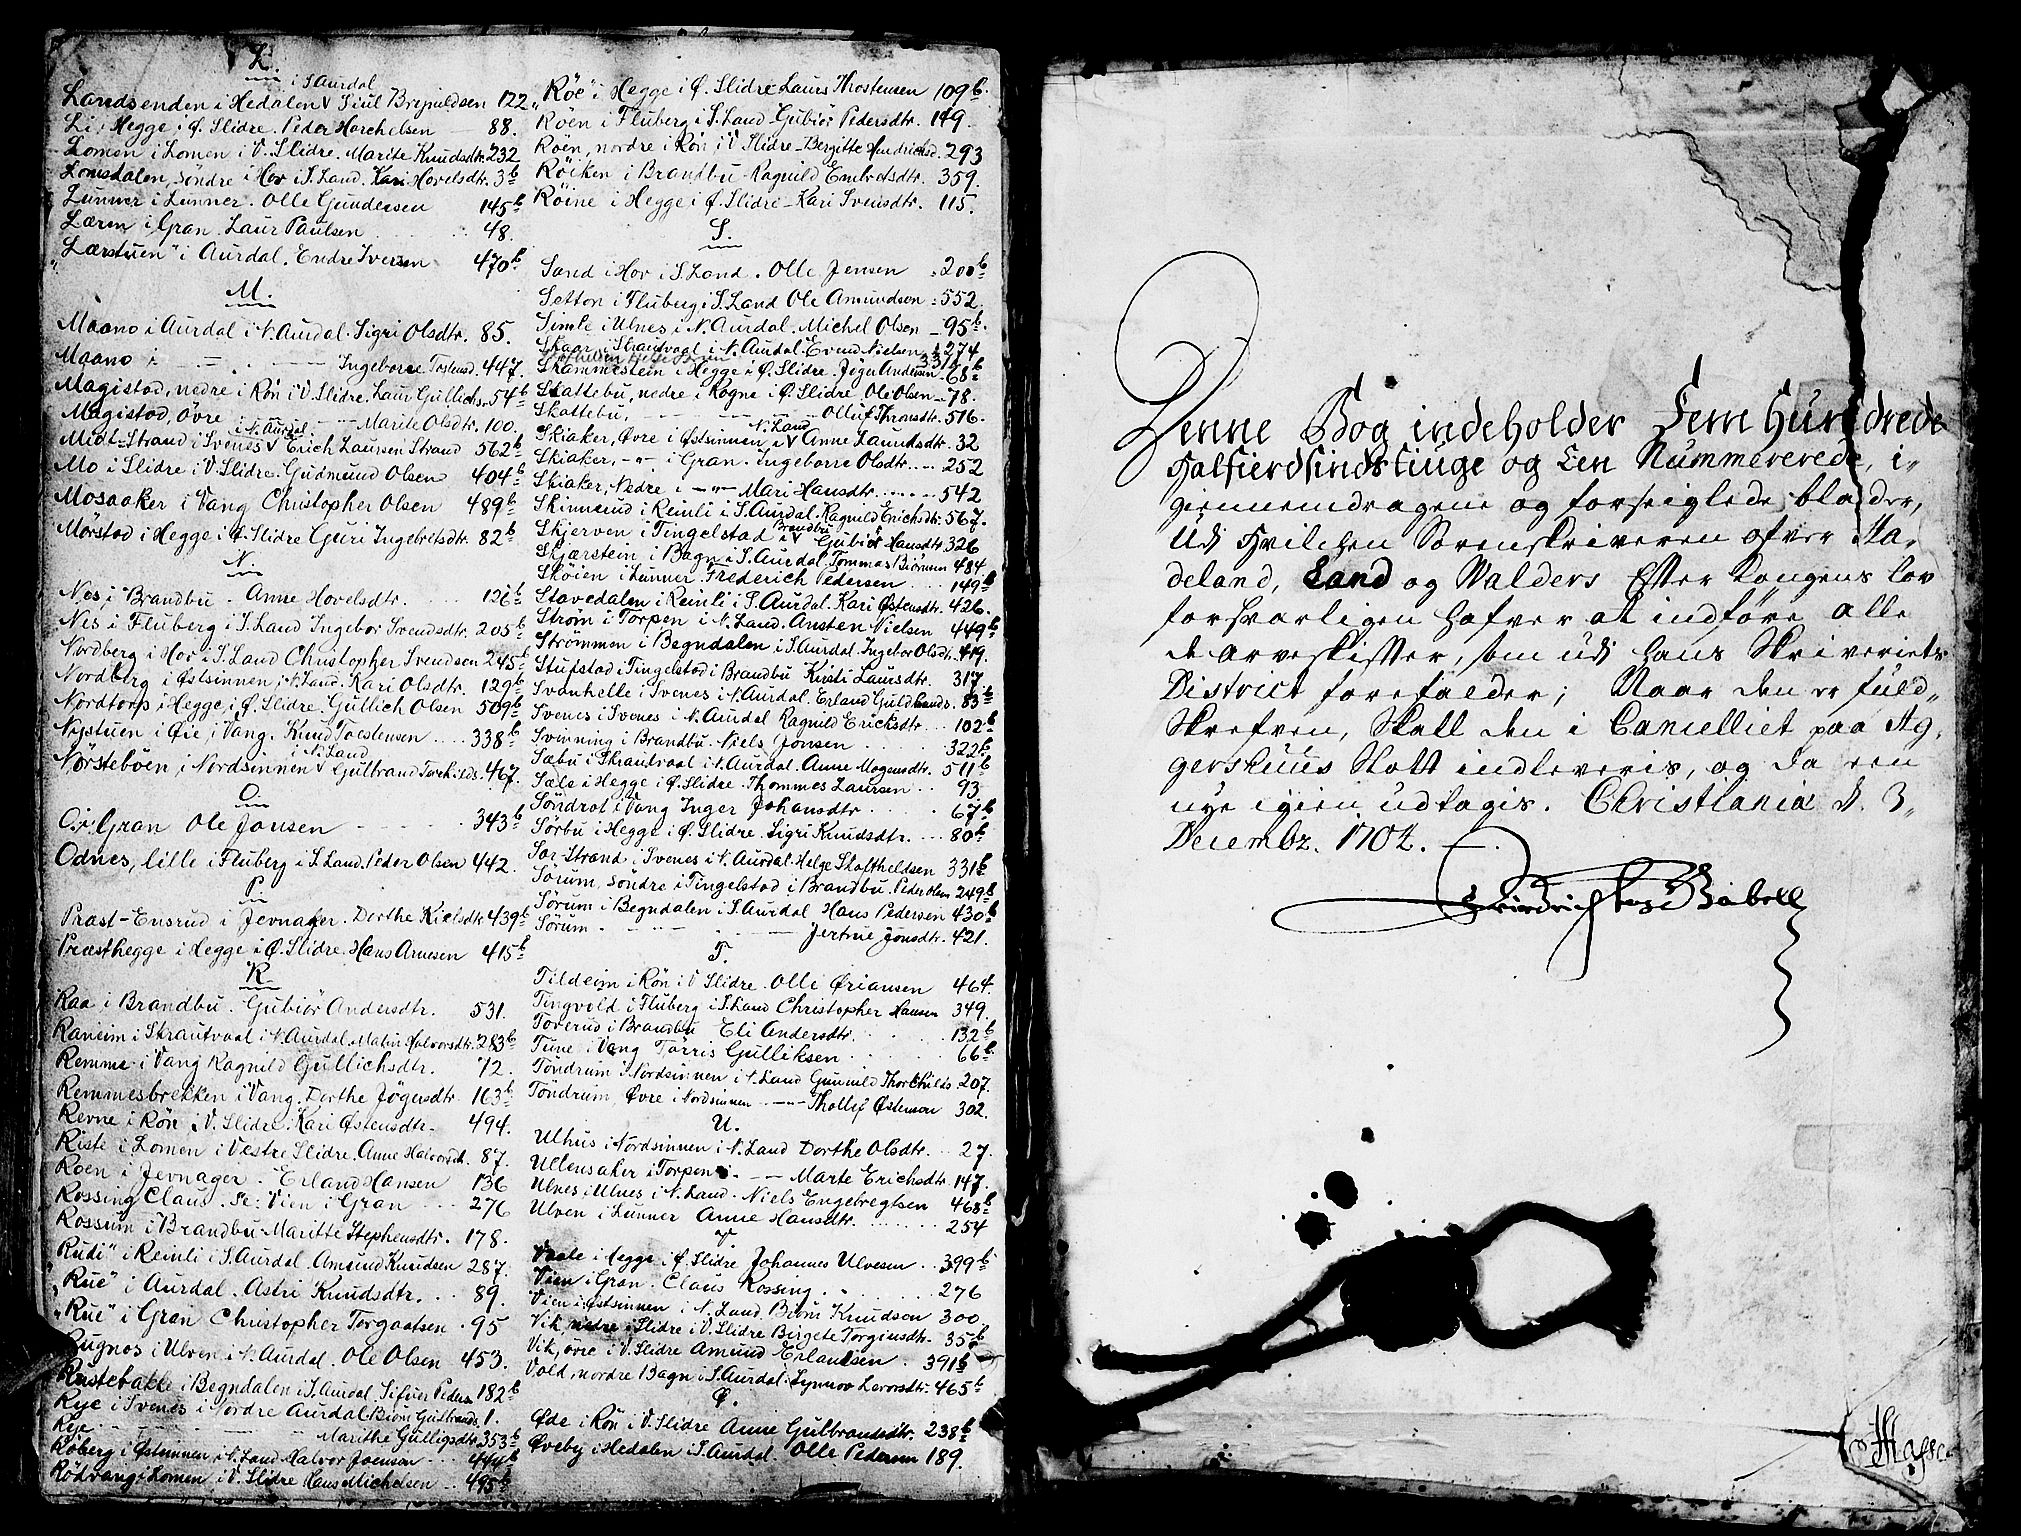 L.
Landsenden i Hedalen i S Aurdal Siul Brynildsen 122
Li i Hegge i Ø. Slidre. Peder Horchelsen 88.
Lomen i Lomen i V. Slidre. Marite Knudsdtr. 232
Lomsdalen, söndre i Hov i S. Land. Kari Hovelsdtr. 3b
Lunner i Lunner. Olle Gundersen 145b
Lærm i Gran. Laur Paulsen 48.
"Lærstuen" i Aurdal. Endre Iversen 470b
M.
Maano i Aurdal i N. Aurdal. Sigri Olsdtr. 85.
Maano i - - Ingeborre Tostensd. 447.
Magistad, nedre i Røn i V. Slidre. Laur Gullichs. 54b
Magistad, övre - Marite Olsdtr. 100.
Midt-Strand i Svenes i N. Aurdal Erich Laursen Strand 562b
Mo i Slidre i V. Slidre. Gudmund Olsen 404b
Mosaaker i Vang Christopher Olsen 489b
Mörstad i Hegge i Ø. Slidre Guri Ingebretsdtr. 82b
N.
Nes i Brandbu. Anne Hovelsdtr. 126b
Nes i Fluberg i S. Land Ingebor Svendsdtr. 205b
Nordberg i Hov i S. Land Christopher Svendsen 245b
Nordberg i Østsinnen i N. Land. Kari Olsdtr. 129b
Nordtorp i Hegge i Ø. Slidre. Gullich Olsen 509b
Nystuen i Øie i Vang. Knud Tostensen 338b
Nørsteböen i Nordsinnen i N. Land Gulbrand Torchilds. 467.
O.
O. i Gran Ole Jonsen 343b
Odnes, lille i Fluberg i S. Land. Peder Olsen 442.
P.
Præst-Ensrud i Jevnaker. Dorthe Kielsdtr 439b
Præsthegge i Hegge i Ø. Slidre. Hans Arnesen 415b
R.
Raa i Brandbu. Gubiör Andersdtr. 531.
Raneim i Strandvaal i N. Aurdal. Malin Halvorsdtr. 283b
Remme i Vang Ragnild Gullichsdtr. 72.
Remmesbrekken i Vang. Dorthe Jögersdtr. 163b
Revne i Røn i V. Slidre. Kari Østensdtr. 494.
Riste i Lomen i Vestre Slidre. Anne Halvorsdtr. 87.
Roen i Jevnager. Erland Hansen 136
Rossing Claus. Se: Vien i Gran 276
Rossum i Brandbu. Maritte Stephensdtr. 178.
Rudi" i Reinli i S. Aurdal. Amund Knudsen 287.
"Rue" i Aurdal. Astri Knudsdtr. 89.
"Rue" i Gran Christopher Torgaatsen 95
Rugnos i Ulven i N. Aurdal. Ole Olsen 453.
Rustebakke i Begndalen i S. Aurdal. Siful Peders. 182b
Rye i Svenes i Nordre Aurdal. Biörn Gulbrands. 1.
Rye - Marithe Gulligsdtr. 353b
Röberg i Østsinnen i N. Land Halvor Joensen 444b
Rödvang i Lomen i V. Slidre Hans Michelsen 495b
"Röe" i Hegge i Ø. Slidre Laurs Thostensen 109b
Röen i Fluberg i S. Land. Gubiör Pedersdtr. 149.
Röen, nordre i Røn i V Slidre - Bergitte Hendrichsd. 293
Röiken i Brandbu. Ragnild Embretsdtr. 359.
Röine i Hegge i Ø. Slidre - Kari Svensdtr. 115.
S.
Sand i Hov i S. Land. Olle Jensen 200b
Setton i Fluberg i S. Land Ole Amundson 552.
Simle i Ulnes i N. Aurdal. Michel Olsen 95b
Skaar i Strandvaal i N. Aurdal. Evend Nielsen 274
Skammestein i Hegge i Ø. Slidre. Jöger Andersen 68b
Skattebu, nedre i Rogne i Ø. Slidre Ole Olsen 78.
Skattebu, - Olluf Thronsdtr. 516.
Skiaker, Øvre i Østsinnen i N. Land Anne Laursdtr. 32
Skiaker, - i Gran. Ingeborre Olsdtr. 252
Skiaker, Nedre i - Mari Hansdtr. 542
Skinnerud i Reinli i S. Aurdal. Ragnild Erichsdtr. 567.
Skjerven i Tingelstad i Brandbu Gubiör Hansdtr. 326
Skjærstein i Bagn i S. Aurdal. Tommas Biörnsen 484
Sköien i Lunner. Frederich Pedersen 149b
Stavedalen i Reinli i S. Aurdal. Kari Østensdtr. 426.
Ström i Torpen i N. Land. Ansten Nielsen 449b
Strömmen i Begndalen i S. Aurdal. Ingebor Olsdtr. 419.
Stufstad i Tingelstad i Brandbu Kirsti Laursdtr. 317
Svanhelle i Svenes i N. Aurdal. Erland Guldbrands. 83b
Svenes i Svenes i N. Aurdal Ragnild Erichsdtr. 102b
Svinning i Brandbu. Niels Jonsen 322b
Sæbu i Skrautvaal i N. Aurdal. Anne Mogensdtr. 511b
Sæle i Hegge i Ø. Slidre. Thommes Laursen 93
Söndrol i Vang Inger Johansdtr 67b
Sörbu i Hegge i Ø. Slidre. Sigri Knudsdtr. 80b
Sör-Strand i Svenes i N. Aurdal. Helge Skaftheldsen 331b
Sörum, söndre i Tingelstad i Brandbu. Peder Olsen 249b
Sörum i Begndalen i S. Aurdal Hans Pedersen 430b
Sörum - Jertrue Jonsdtr. 421.
T.
Tildeim i Røn i V Slidre. Olli Øriansen 464.
Tingvold i Fluberg i S. Land Christopher Hansen 349.
Toverud i Brandbu Eli Andersdtr. 132b
Tune i Vang Torris Gulliksen 66b
Töndrum i Nordsinnen i N. Land Gunnild Thorchilds. 207.
Töndrum, Øvre i Nordsinnen - Thollef Østensen 302.
U.
Ulhus i Nordsinnen i N. Land Dorthe Olsdtr. 27.
Ullensaker i Torpen i - Marte Erichsdtr. 147.
Ulnes i Ulnes i N. Land. Niels Engebregtsen 468b
Ulven i Lunner Anne Hansdtr. 254
V.
Vaale i Hegge i Ø. Slidre Johannes Ulvesen 399b
Vien i Gran. Claus Rossing 276
Vien i Østsinnen i N. Land. Biörn Knudsen 300
Vik, nedre i Slidre i V. Slidre Birgete Torgiusdtr. 35b
Vik, övre i V. Slidre Amund Erlandsen 391b
Vold, nordre Bagn i S. Aurdal. Synnov Levorsdtr. 465b
Ø.
Øde i Røn i V. Slidre Anne Gulbrandsdtr. 238b
Øveby i Hedalen i S. Aurdal. Olle Pedersen 189.
Denne Bog indeholder Fem Hundrede
Halfierdsindstiuge og Een Nummererede, i-
giennemdragene og forseiglede blader,
Udi Hvilchen Sorenskriveren ofver Ha-
deland, Land og Walders Efter Kongens lov
forsvarligen hafver at indføre alle
de arveskifter, som udi hans Skriveriets
District forefalder; Naar den er fuld-
Skrefven, Skall den i Cancelliet paa Ag-
gershuus Slott indleveris, og da een
nye igien udtagis. Christiania d. 3.
Decembr. 1702.